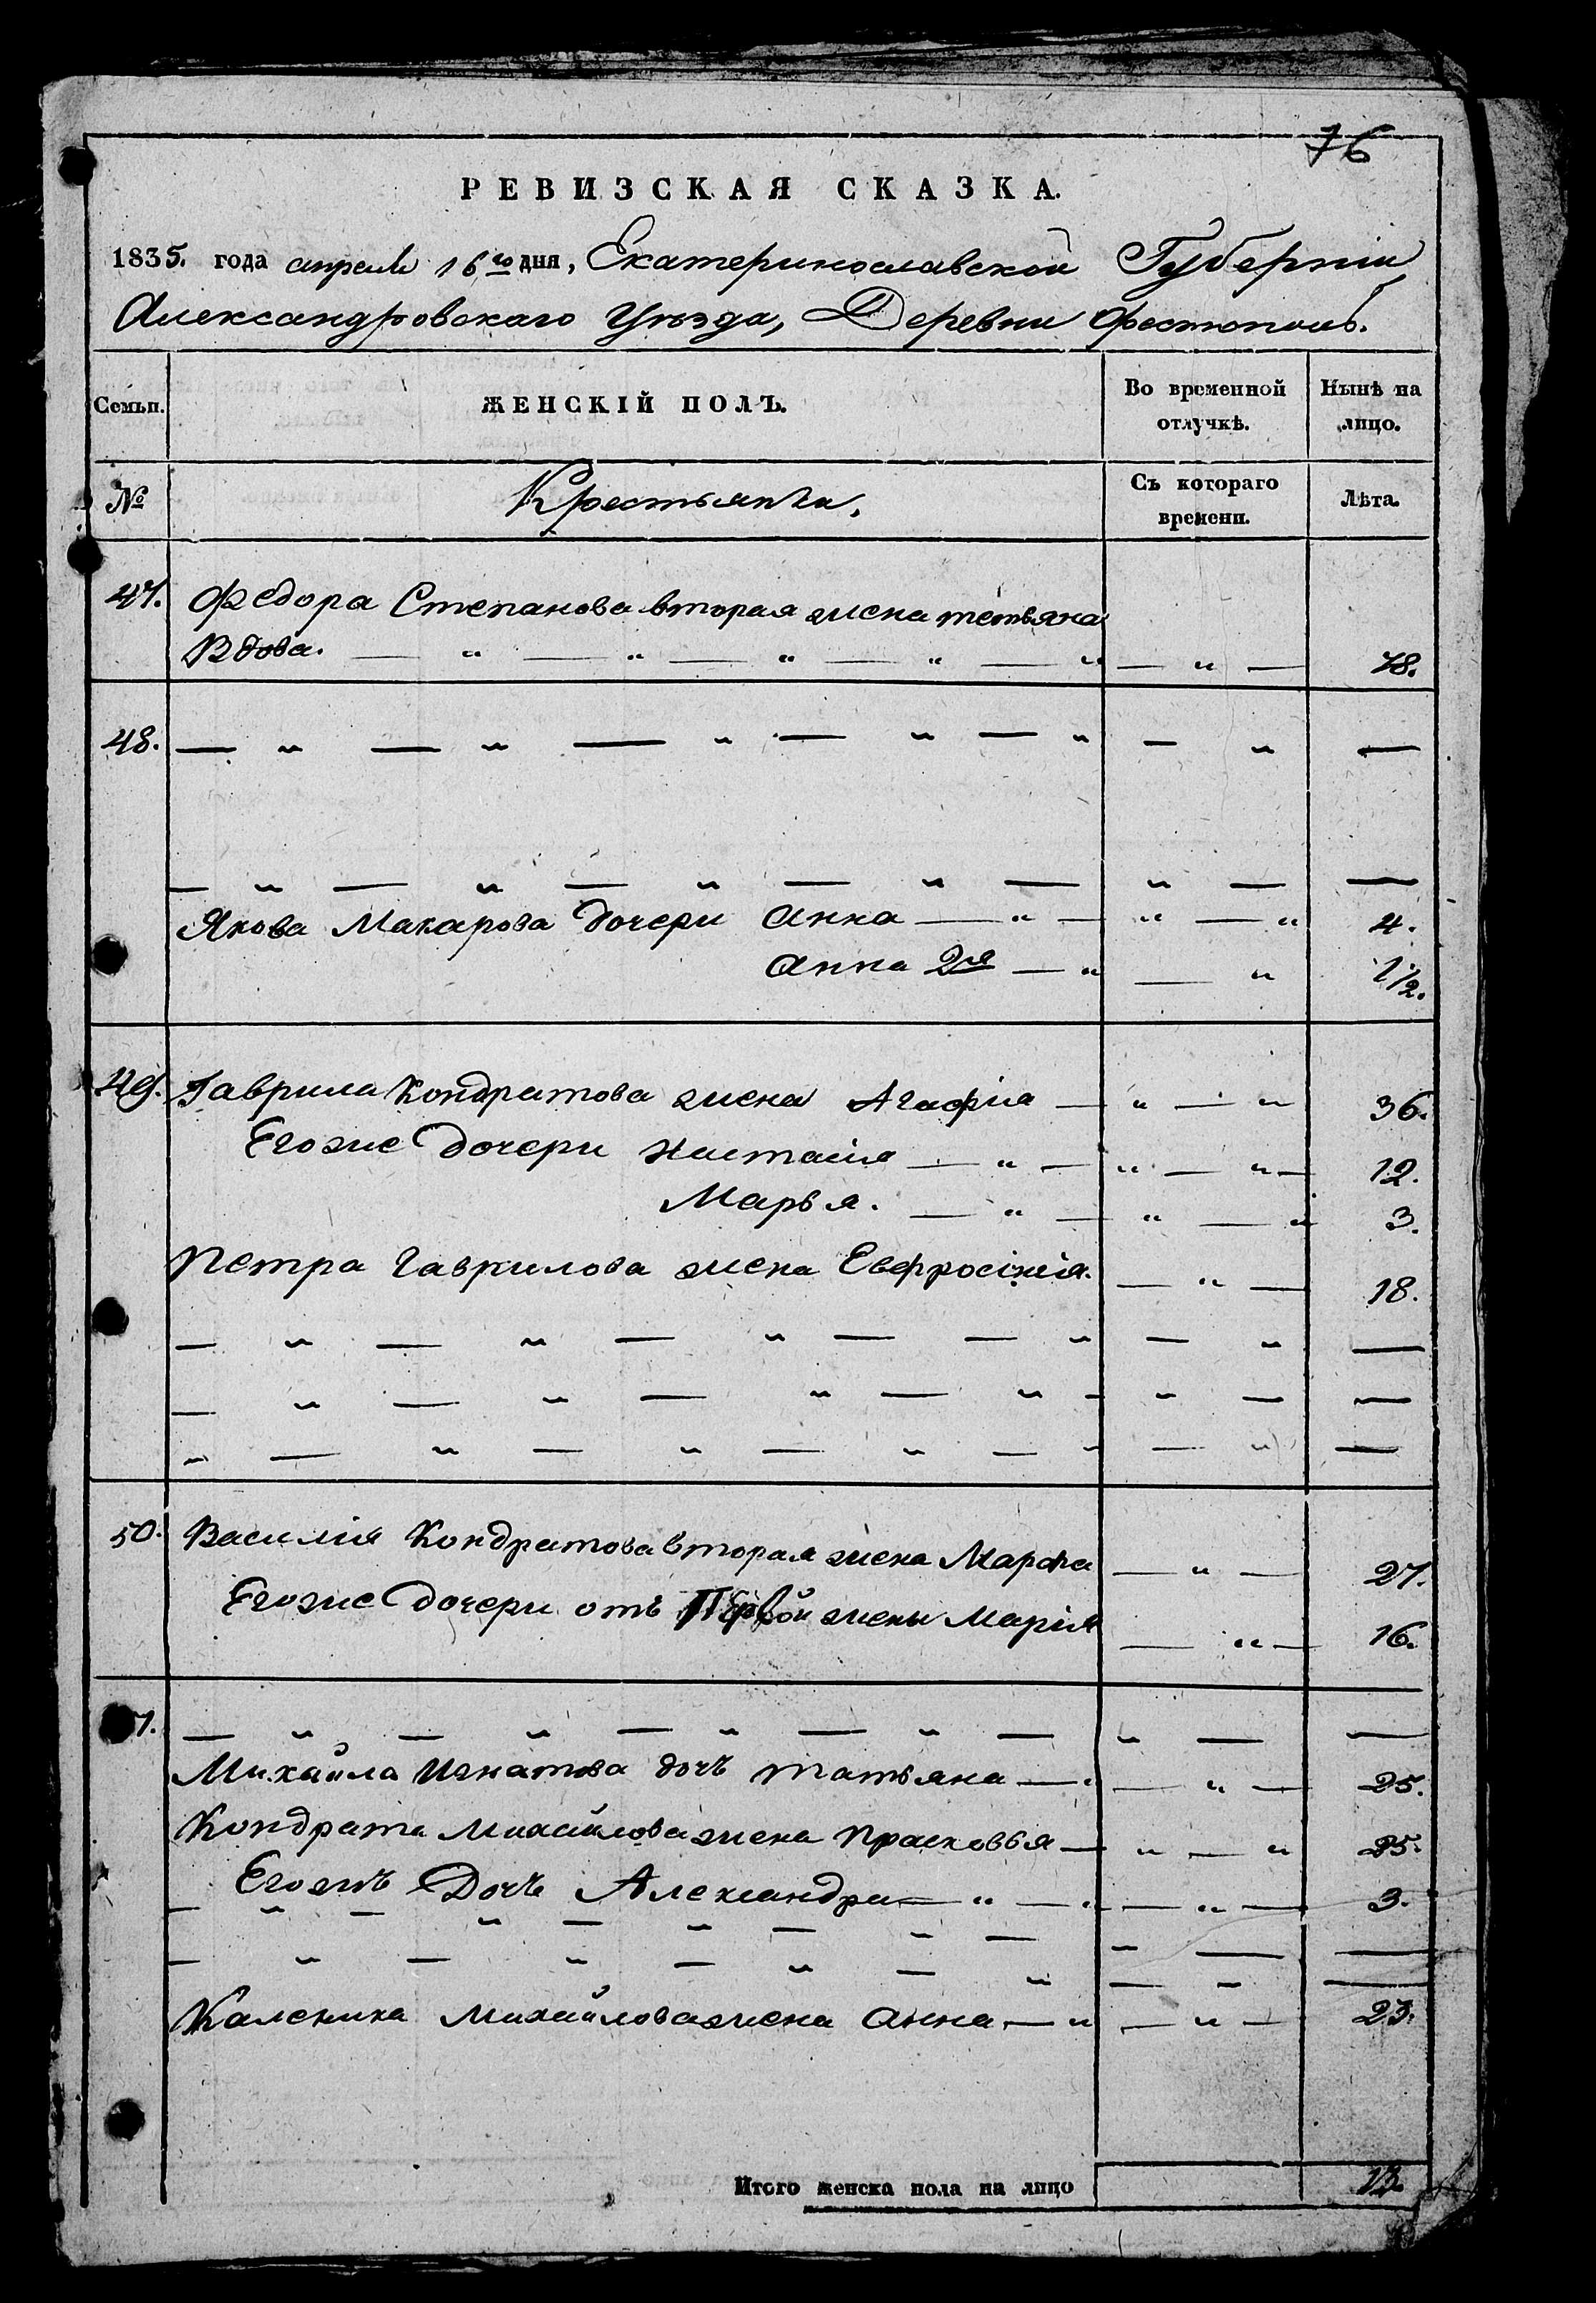 76
РЕВИЗСКАЯ СКАЗКА.
1835. года апреля 16го дня, Екатеринославской Губерніи
Александровскаго Уѣзда, Деревни Фестополь.
Семьи. ЖЕНСКІЙ ПОЛЪ. Во временной отлучкѣ. Нынѣ на лицо.
№ Крестьянѣ. Съ котораго времени. Лѣта.
47. Федора Степанова вторая жена тетьяна
Вдова. — " — " — " — " — " — " — 78.
48. — " — " — " — " — " — " —
— " — " — " — " — " — —
Якова Макарова дочери Анна — " — " — " 4.
Анна 2я — " — " 1/2.
49. Гаврила Кондратова жена Агафія — " — " 36.
Егоже дочери Настасія — " — " — " — 12.
Марья. — " — " — " 3.
Петра Гаврилова жена Евфросінія. — " — 18.
— " — " — " — — " — " —
— " — " — " — " — " — —
" — " — " — " — " — " —
50. Василія Кондратова вторая жена Марфа — " — 27.
Егоже дочери отъ Первой жены Марія — " — 16.
1. — " — " — " — " — " — —
Михайла Игнатова дочь татьяна — " — " — 25.
Кондрата Михайлова жена Прасковья — " — " 25.
Егожъ Дочь Александра — " — " — " — 3.
— " — " — " — " — " — —
— " — " — " — " — " —
Каленика Михайлова жена Анна — " — " — 23.
Итого женска пола на лицо 13.